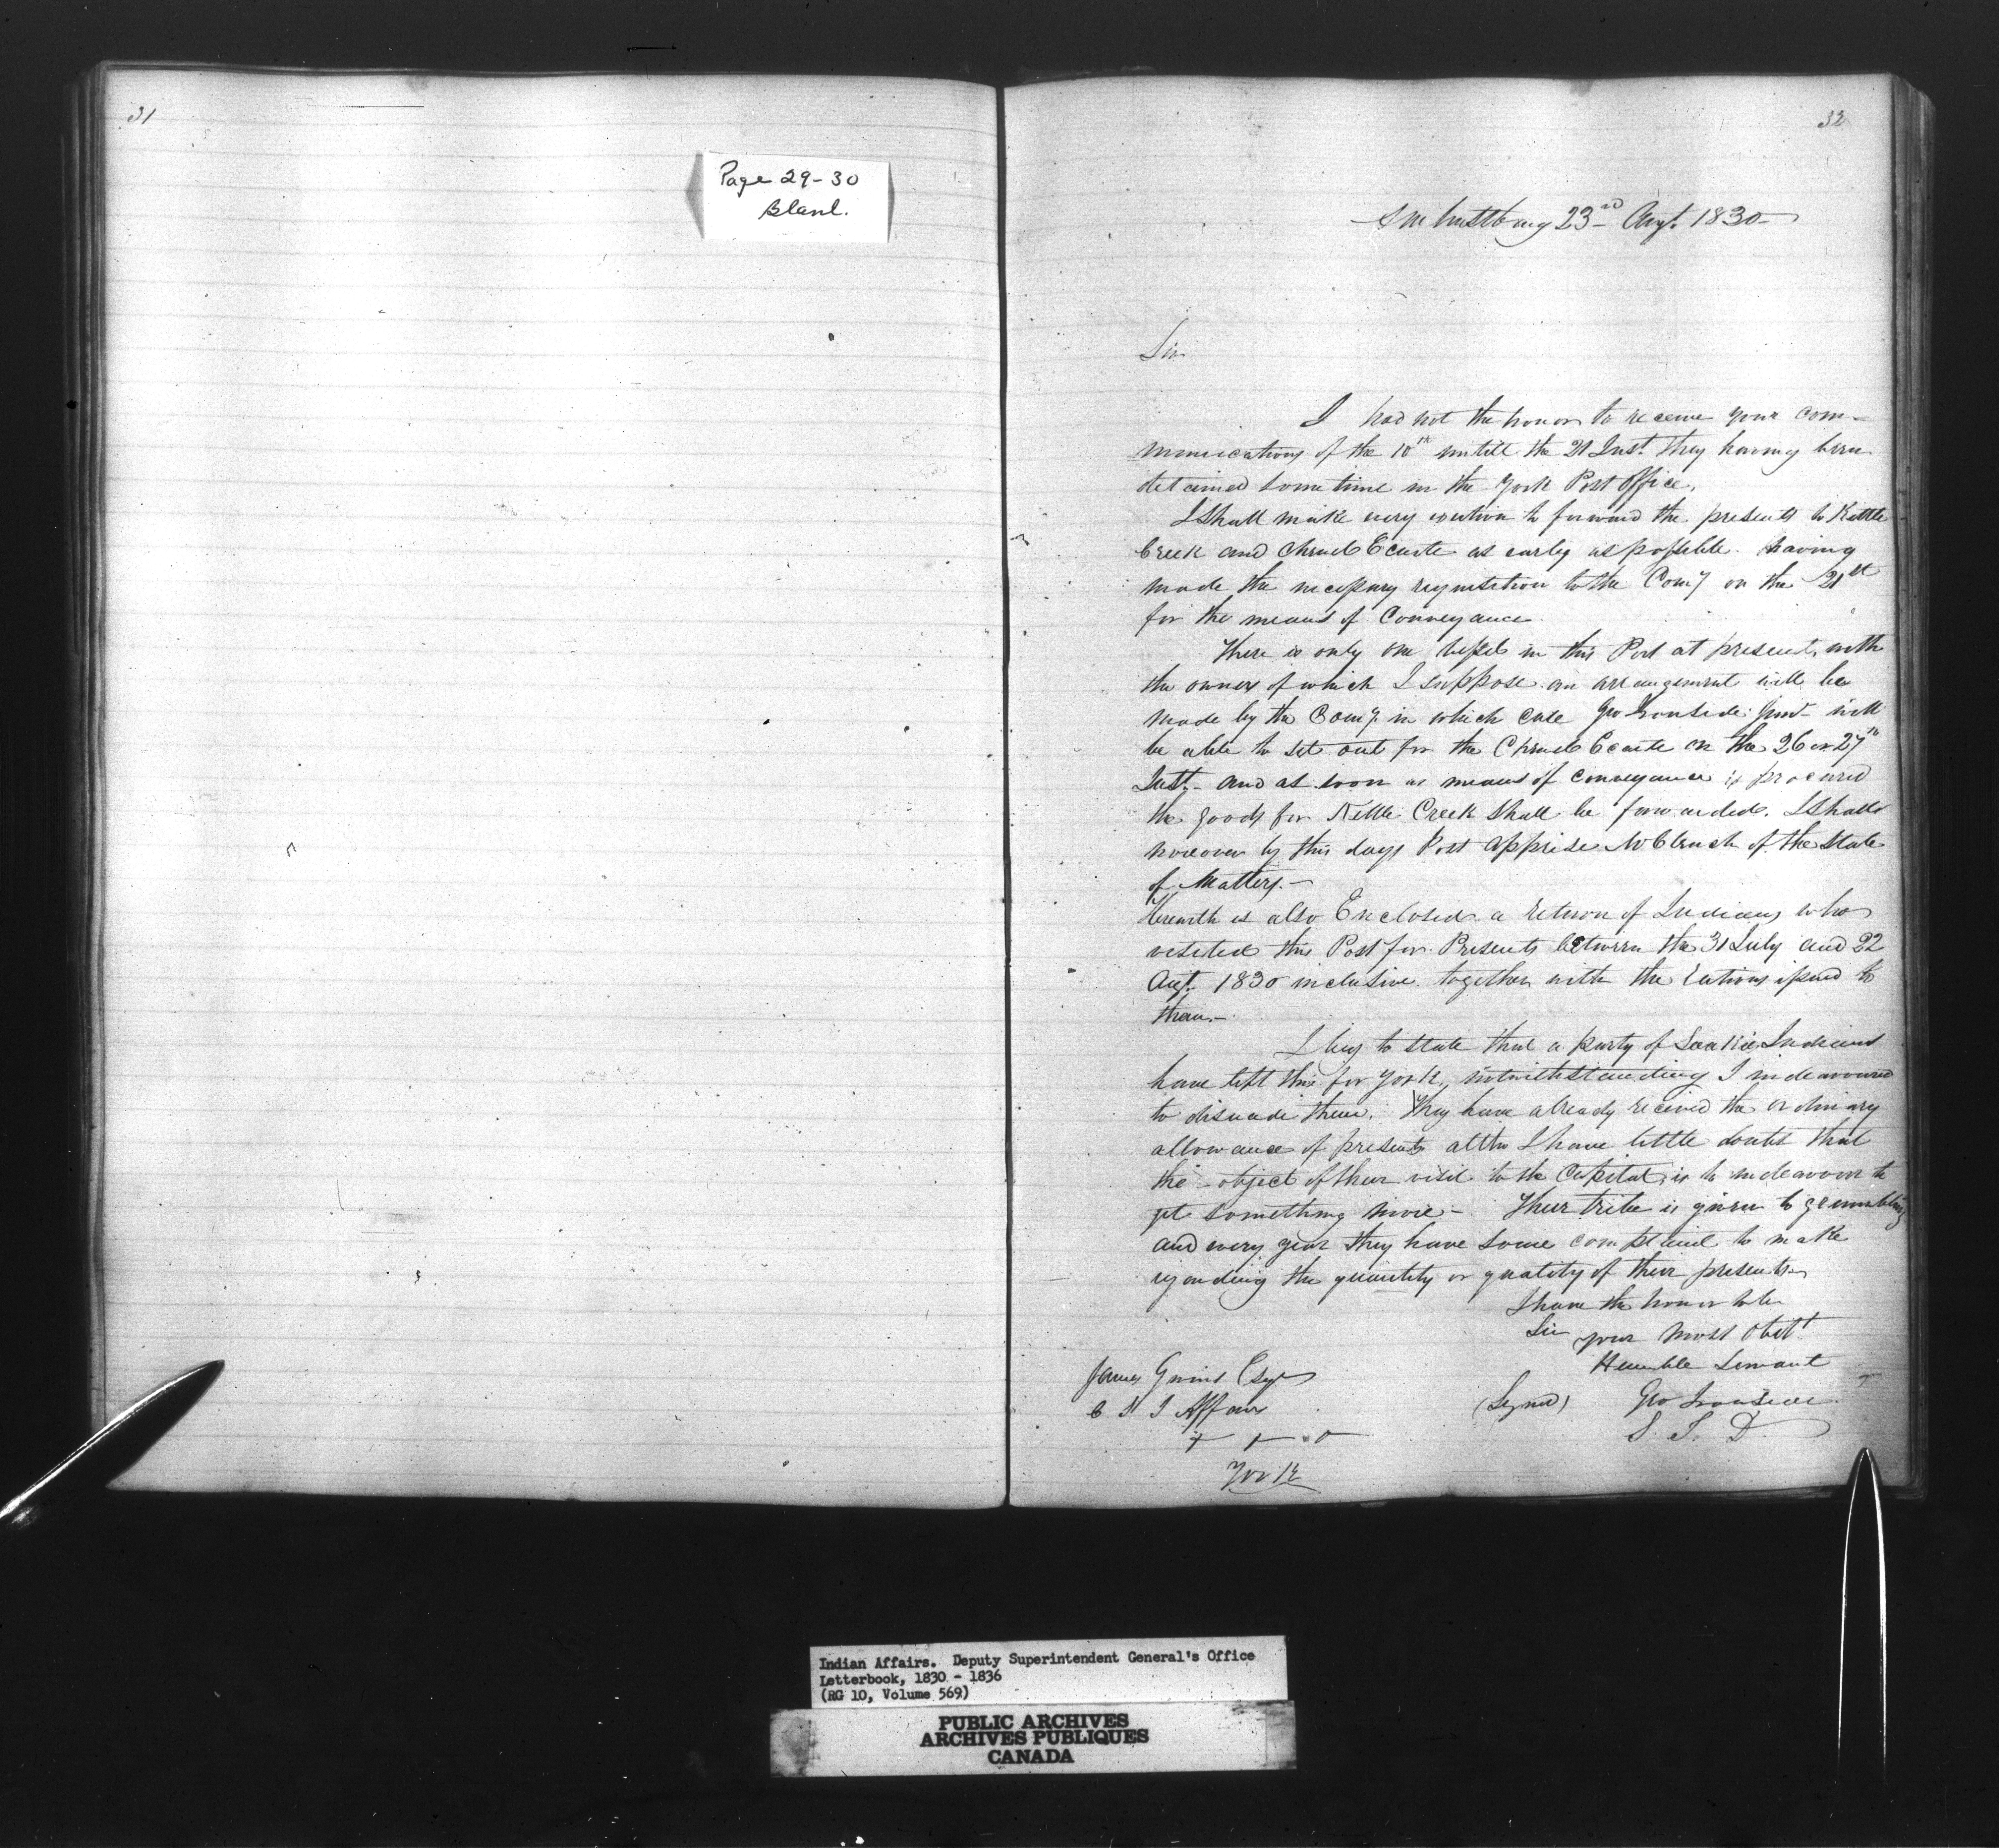 31
Page 29-30
Blank.
32
Amherstburg 23rd Augt. 1830
Sir
I had not the honor to receive your com-
munications of the 10th untill the 21 Inst. they having been
detained some time in the York Post Office.
I shall make every exertion to forward the presents to Kettle
Creek and Chenail Ecarte as early as possible. having
made the necessary requisition to the Comy on the 21st
for the means of Conveyance
There is only one vessel in this Port at present, with
the owner of which I suppose an arrangement will be
made by the Comy. in which case Geo Ironside Junr will
be able to set out for the Chenail Ecarte on the 26 or 27th
Inst. and as soon as means of conveyance is procured
the goods for Kettle Creek shall be forwarded. I shall
moreover by this days Post apprise Mr Clench of the state
of Matters.-
Herewith is also Enclosed a return of Indians who
visited this Post for Presents between the 31 July and 22
Augt. 1830 inclusive together with the rations issued to
them.-
I beg to state that a party of Saakie Indians
have left this for York, notwithstanding I indeavoured
to disuade them. They have already received the ordinary
allowance of presents altho I have little doubt that
the object of their visit to the Capital, is to indeavour to
get something more - Their tribe is given to grumbling
and every year they have some complaint to make
regarding the quantity or quality of their presents
I have the honor to be
Sir your most Obdt
Humble Servant
(Signed) Geo Ironside
S. I. D
James Givins Esqr
C S I Affairs
+ + +
York
Indian Affairs. Deputy Superintendent General's Office
Letterbook, 1830 - 1836
(RG 10, Volume 569)
PUBLIC ARCHIVES
ARCHIVES PUBLIQUES
CANADA